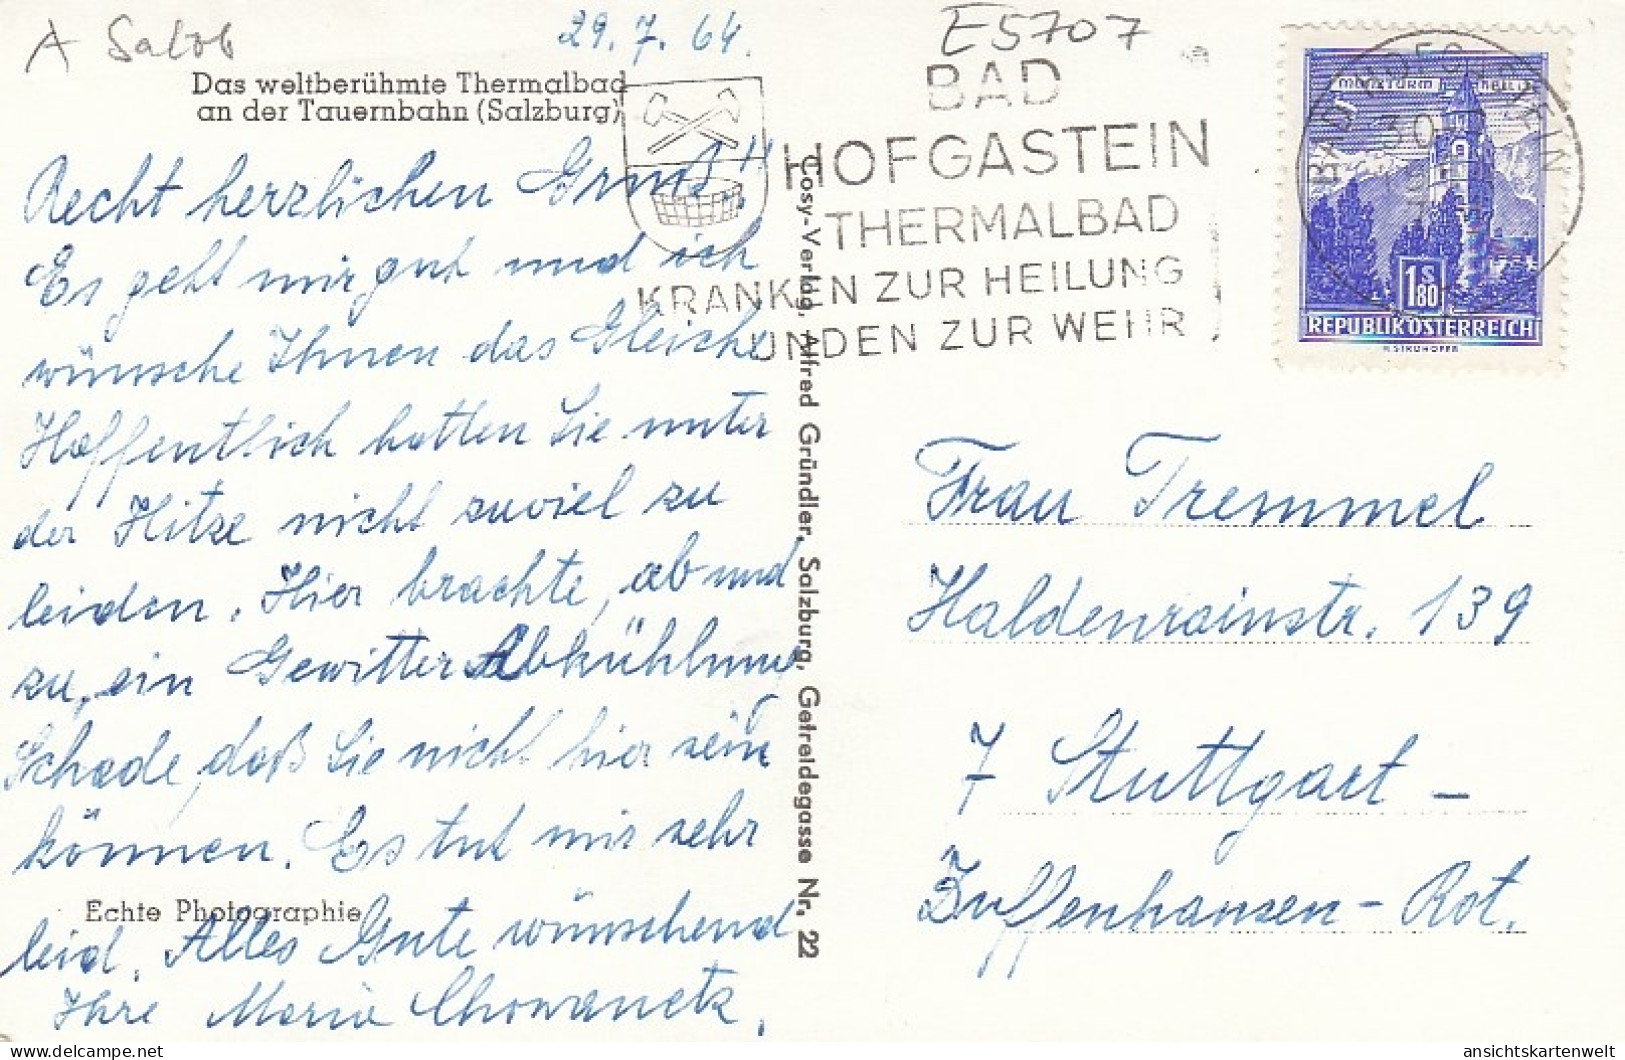 A Salzb
29.7.64.
E5707
Das weltberühmte Thermalbad
an der Tauernbahn (Salzburg)
Recht herzlichen Gruß!!
Es geht mir gut und ich
wünsche Ihnen das Gleiche
Hoffentlich hatten Sie unter
der Hitze nicht zuviel zu
leiden. Hier brachte, ab und
zu, ein Gewitter Abkühlung
Schade, daß Sie nicht hier sein
können. Es tut mir sehr
leid. Alles Gute wünschend
Ihre Maria Chowanetz.
Echte Photographie
Cosy-Verlag, Alfred Gründler, Salzburg, Getreidegasse Nr. 22
BAD
HOFGASTEIN
THERMALBAD
KRANKEN ZUR HEILUNG
UNDEN ZUR WEHR
30
1 S 80
REPUBLIK ÖSTERREICH
Frau Tremmel
Haldenrainstr. 139
7 Stuttgart –
Zuffenhausen – Rot.
ansichtskartenwelt